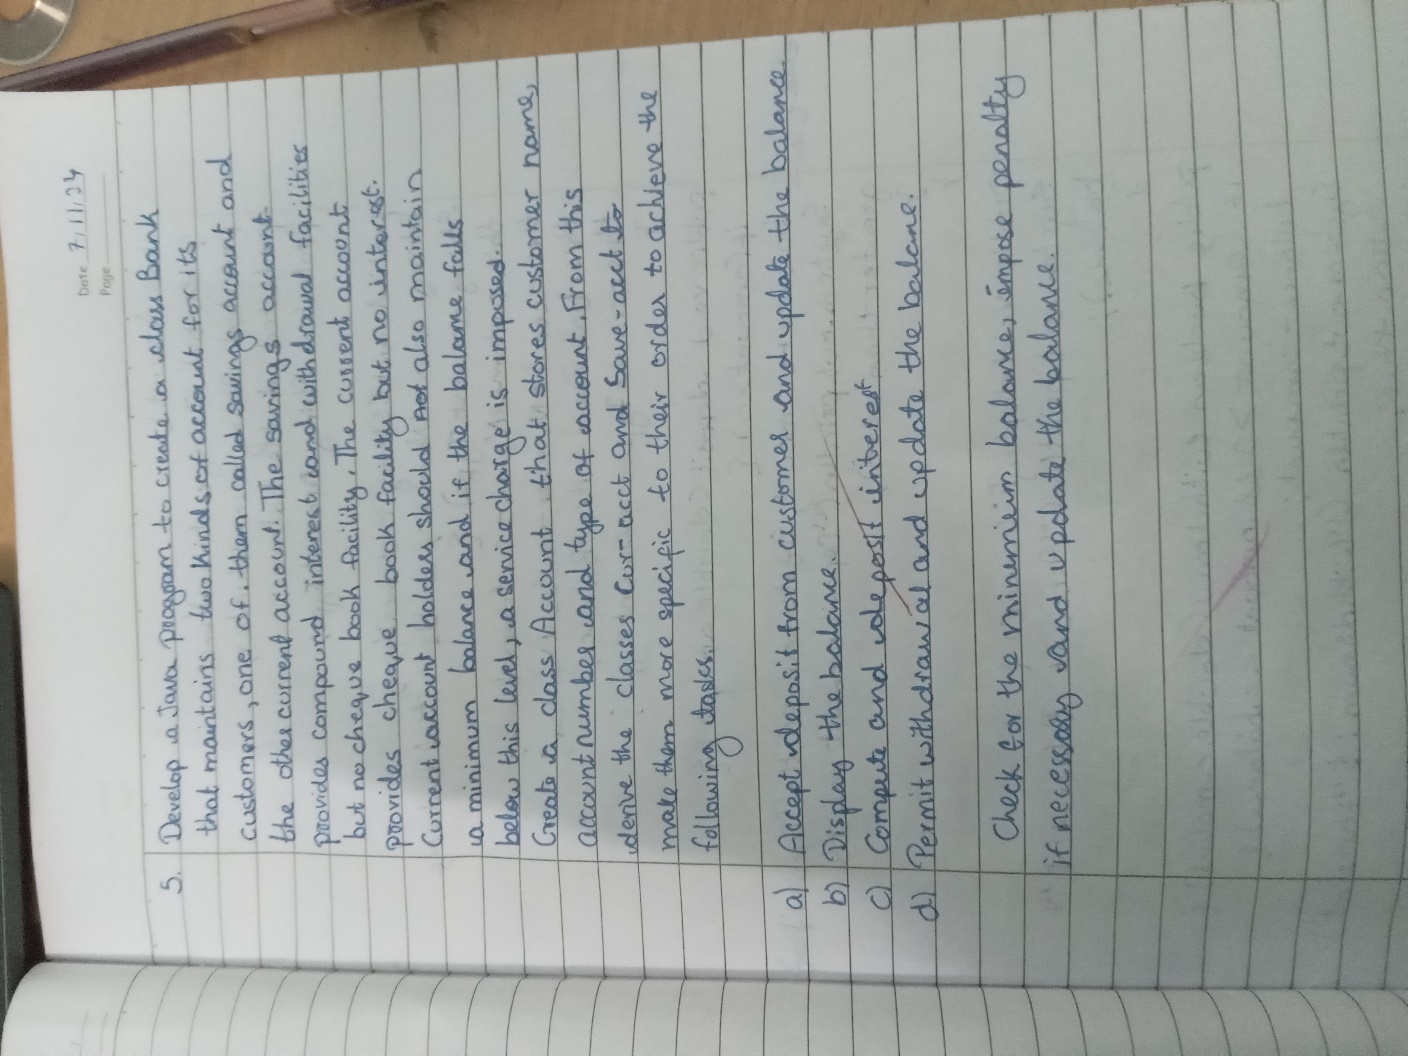 Date 7/11/24
Page
5. Develop a Java program to create a class Bank
that maintains two kinds of account for its
customers, one of them called savings account and
the other current account. The savings account
provides compound interest and withdrawal facilities
but no cheque book facility. The current account
provides cheque book facility but no interest.
Current account holders should not also maintain
a minimum balance and if the balance falls
below this level, a service charge is imposed.
Create a class Account that stores customer name,
account number and type of account. From this
derive the classes Cur-acct and Save-acct to
make them more specific to their order to achieve the
following tasks.
a) Accept deposit from customer and update the balance.
b) Display the balance.
c) Compute and deposit interest
d) Permit withdrawal and update the balance.
Check for the minimum balance, impose penalty
if necessary and update the balance.